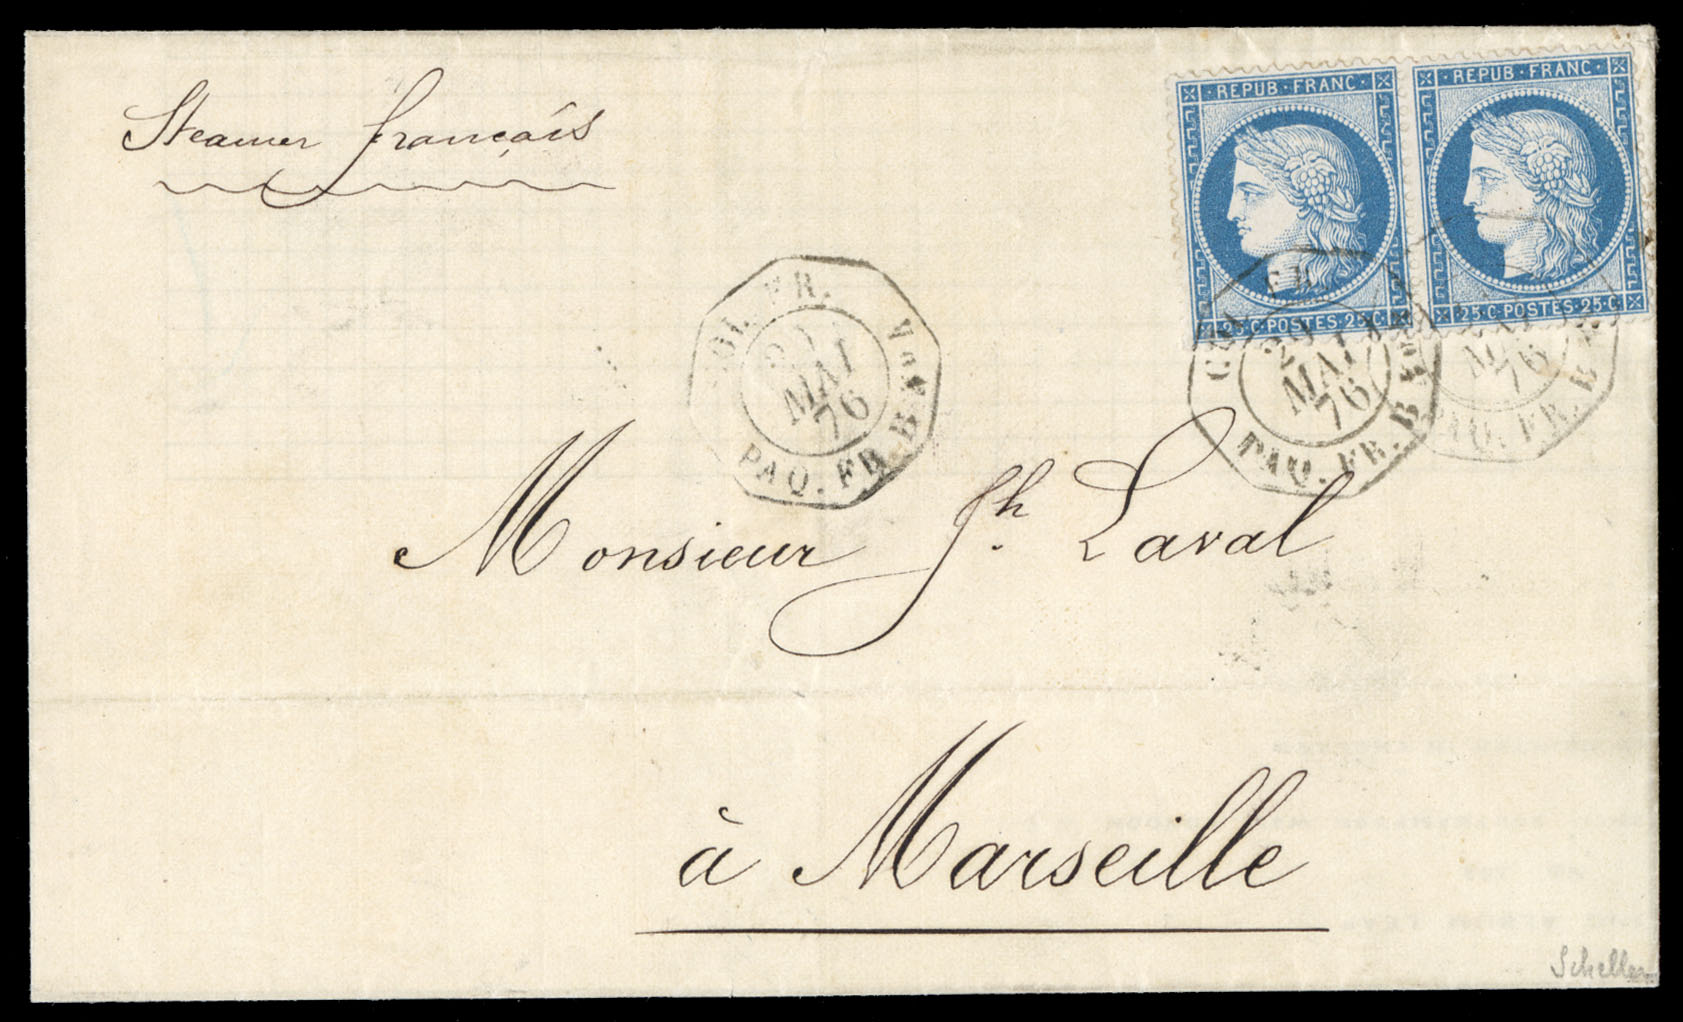 Steamer français
REPUB · FRANC ·
25 · C · POSTES · 25 · C
REPUB · FRANC ·
25 · C · POSTES · 25 · C
COL. FR.
MAI
76
PAQ. FR. B
FR.
MAI
76
PAQ. FR. B
76
PAQ. FR. B
Monsieur Jh. Laval
à Marseille
Scheller